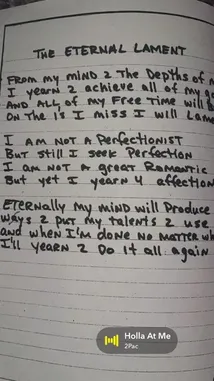 THE ETERNAL LAMENT
FROM MY MIND 2 THE DEPTHS OF
I YEARN 2 ACHIEVE ALL OF MY
AND ALL, OF MY FREE TIME WILL
ON THE 1's I MISS I WILL
I AM NOT A PERFECTIONIST
BUT STILL I SEEK PERFECTION
I AM NOT A GREAT ROMANTIC
BUT YET I YEARN 4 AFFECTION
ETERNALLY MY MIND WILL PRODUCE
WAYS 2 PUT MY TALENTS 2 USE
and WHEN I'M DONE NO MATTER
I'll YEARN 2 DO IT ALL AGAIN
Holla At Me
2Pac